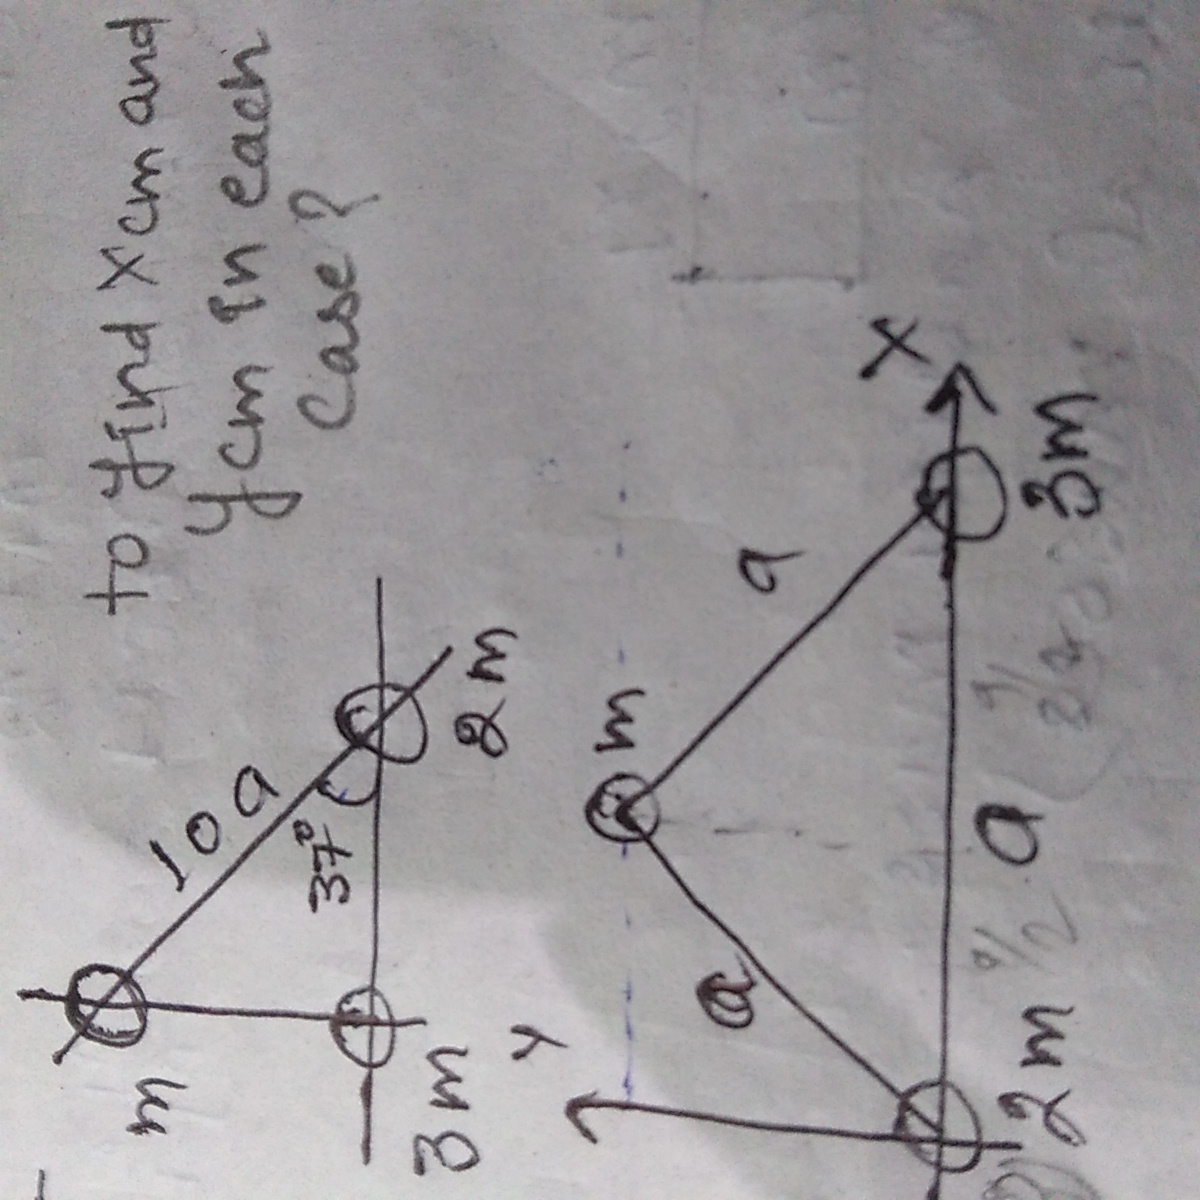 to find Xcm and
Ycm in each
case?
m
10 a
37°
3m
2m
Y
m
a
a
2m
a/2
a
3m
X